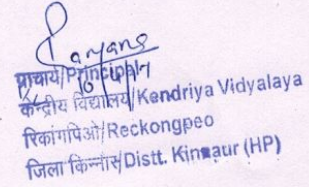 प्राचार्य/Principal
केन्द्रीय विद्यालय/Kendriya Vidyalaya
रिकांगपिओ/Reckongpeo
जिला किन्नौर/Distt. Kinnaur (HP)